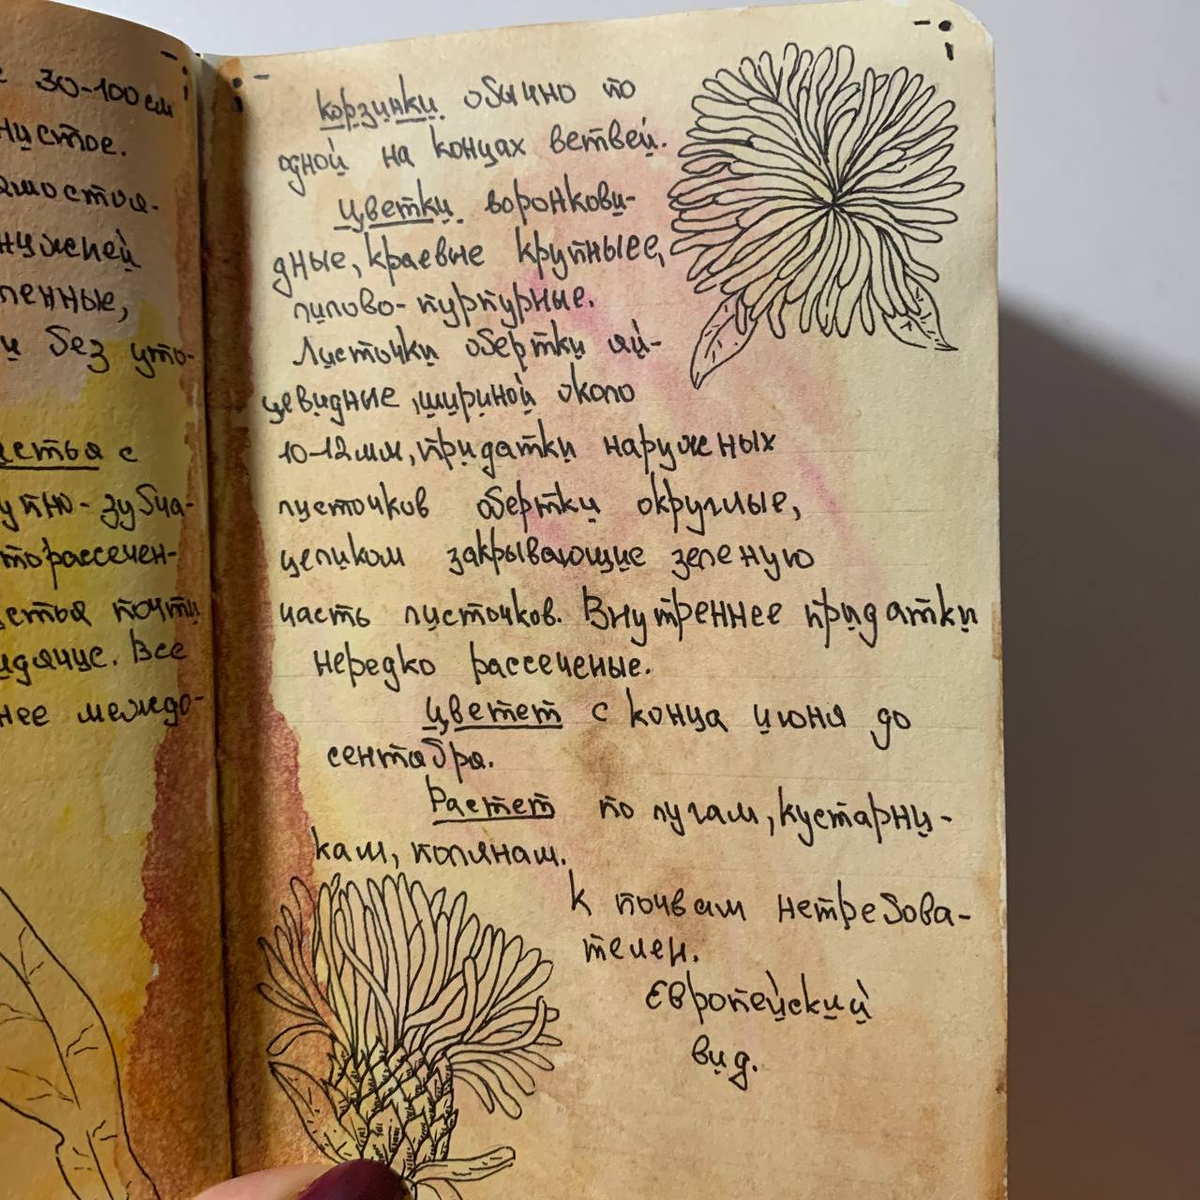 30-100 см
нистое.
без уто-
с
зубча-
торассечен-
почти
Все
нее междо-
корзинки обычно по
одной на концах ветвей.
Цветки воронкови-
дные, краевые крупныее,
лилово-пурпурные.
Листочки обертки яй-
цевидные, шириной около
10-12мм, придатки наружных
листочков обертки округлые,
целиком закрывающие зеленую
часть листочков. Внутреннее придатки
нередко рассеченые.
Цветет с конца июня до
сентабра.
Растет по лугам, кустарни-
кам, полянам.
К почвам нетребова-
телен.
Европейский
вид.